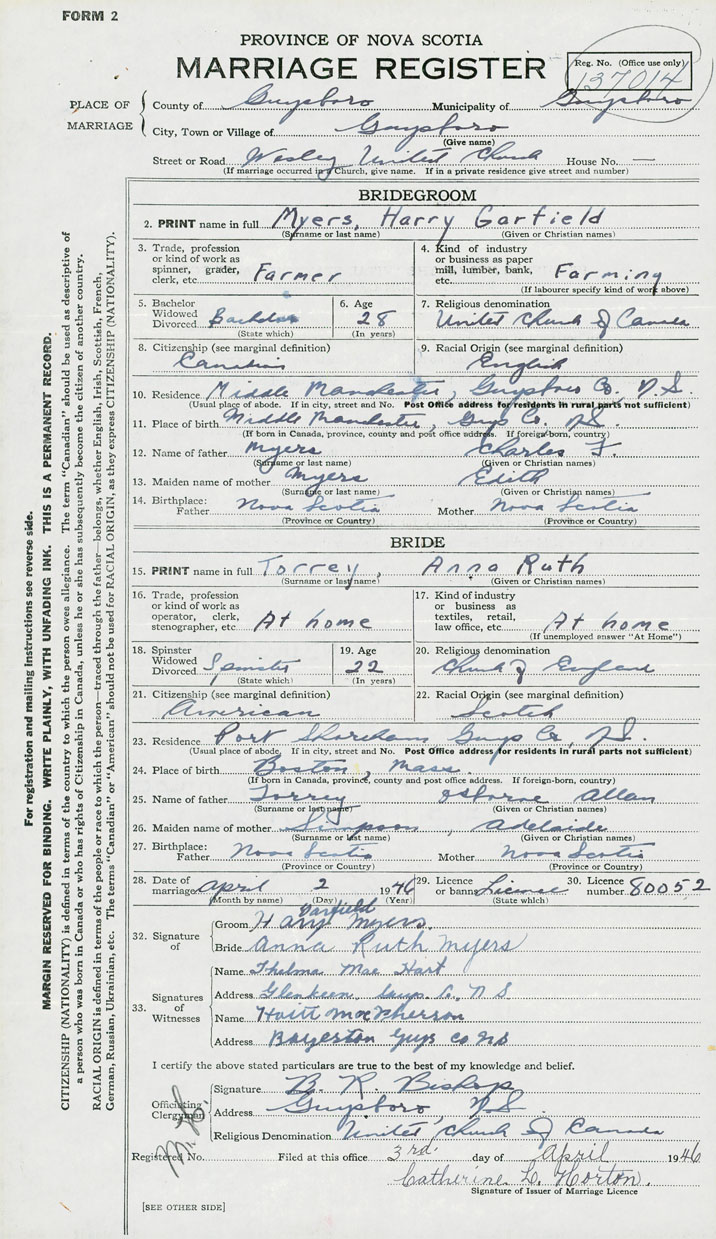 FORM 2
PROVINCE OF NOVA SCOTIA
MARRIAGE REGISTER
Reg. No. (Office use only)
137014
PLACE OF MARRIAGE
County of Guysboro Municipality of Guysboro
City, Town or Village of Guysboro
(Give name)
Street or Road Wesley United Church House No. —
(If marriage occurred in a Church, give name. If in a private residence give street and number)
BRIDEGROOM
2. PRINT name in full Myers, Harry Garfield
(Surname or last name) (Given or Christian names)
3. Trade, profession or kind of work as spinner, grader, clerk, etc. Farmer
4. Kind of industry or business as paper mill, lumber, bank, etc. Farming
(If labourer specify kind of work above)
5. Bachelor Widowed Divorced Bachelor
(State which)
6. Age 28
(In years)
7. Religious denomination
United Church of Canada
8. Citizenship (see marginal definition)
Canadian
9. Racial Origin (see marginal definition)
English
10. Residence Middle Manchester, Guysboro Co. N.S.
(Usual place of abode. If in city, street and No. Post Office address for residents in rural parts not sufficient)
11. Place of birth Middle Manchester, Guys Co. N.S.
(If born in Canada, province, county and post office address. If foreign born, country)
12. Name of father Myers Charles F.
(Surname or last name) (Given or Christian names)
13. Maiden name of mother Myers Edith
(Surname or last name) (Given or Christian names)
14. Birthplace: Father Nova Scotia Mother Nova Scotia
(Province or Country) (Province or Country)
BRIDE
15. PRINT name in full Torrey, Anna Ruth
(Surname or last name) (Given or Christian names)
16. Trade, profession or kind of work as operator, clerk, stenographer, etc. At home
17. Kind of industry or business as textiles, retail, law office, etc. At home
(If unemployed answer "At Home")
18. Spinster Widowed Divorced Spinster
(State which)
19. Age 22
(In years)
20. Religious denomination
Church of England
21. Citizenship (see marginal definition)
American
22. Racial Origin (see marginal definition)
Scotch
23. Residence Port Shoreham Guys Co, N.S.
(Usual place of abode. If in city, street and No. Post Office address for residents in rural parts not sufficient)
24. Place of birth Boston, Mass.
(If born in Canada, province, county and post office address. If foreign-born, country)
25. Name of father Torrey Osborne Allan
(Surname or last name) (Given or Christian names)
26. Maiden name of mother Simpson, Adelaide
(Surname or last name) (Given or Christian names)
27. Birthplace: Father Nova Scotia Mother Nova Scotia
(Province or Country) (Province or Country)
28. Date of marriage April 2 1946
(Month by name) (Day) (Year)
29. Licence or banns License
(State which)
30. Licence number 80052
32. Signature of
Groom Harry Garfield Myers.
Bride Anna Ruth Myers
33. Signatures of Witnesses
Name Thelma Mae Hart
Address Glenkeen Guys. Co., N S
Name Hoitt MacPherson
Address Boylston Guys Co NS
I certify the above stated particulars are true to the best of my knowledge and belief.
Officiating Clergyman
Signature B. R. Bishop
Address Guysboro, N.S.
Religious Denomination United Church of Canada
Registered No. Filed at this office 3rd. day of April 1946
Catherine L. Horton.
Signature of Issuer of Marriage Licence
[SEE OTHER SIDE]
For registration and mailing instructions see reverse side.
MARGIN RESERVED FOR BINDING. WRITE PLAINLY, WITH UNFADING INK. THIS IS A PERMANENT RECORD.
CITIZENSHIP (NATIONALITY) is defined in terms of the country to which the person owes allegiance. The term "Canadian" should be used as descriptive of
a person who was born in Canada or who has rights of Citizenship in Canada, unless he or she has subsequently become the citizen of another country.
RACIAL ORIGIN is defined in terms of the people or race to which the person—traced through the father—belongs, whether English, Irish, Scottish, French,
German, Russian, Ukrainian, etc. The terms "Canadian" or "American" should not be used for RACIAL ORIGIN, as they express CITIZENSHIP (NATIONALITY).